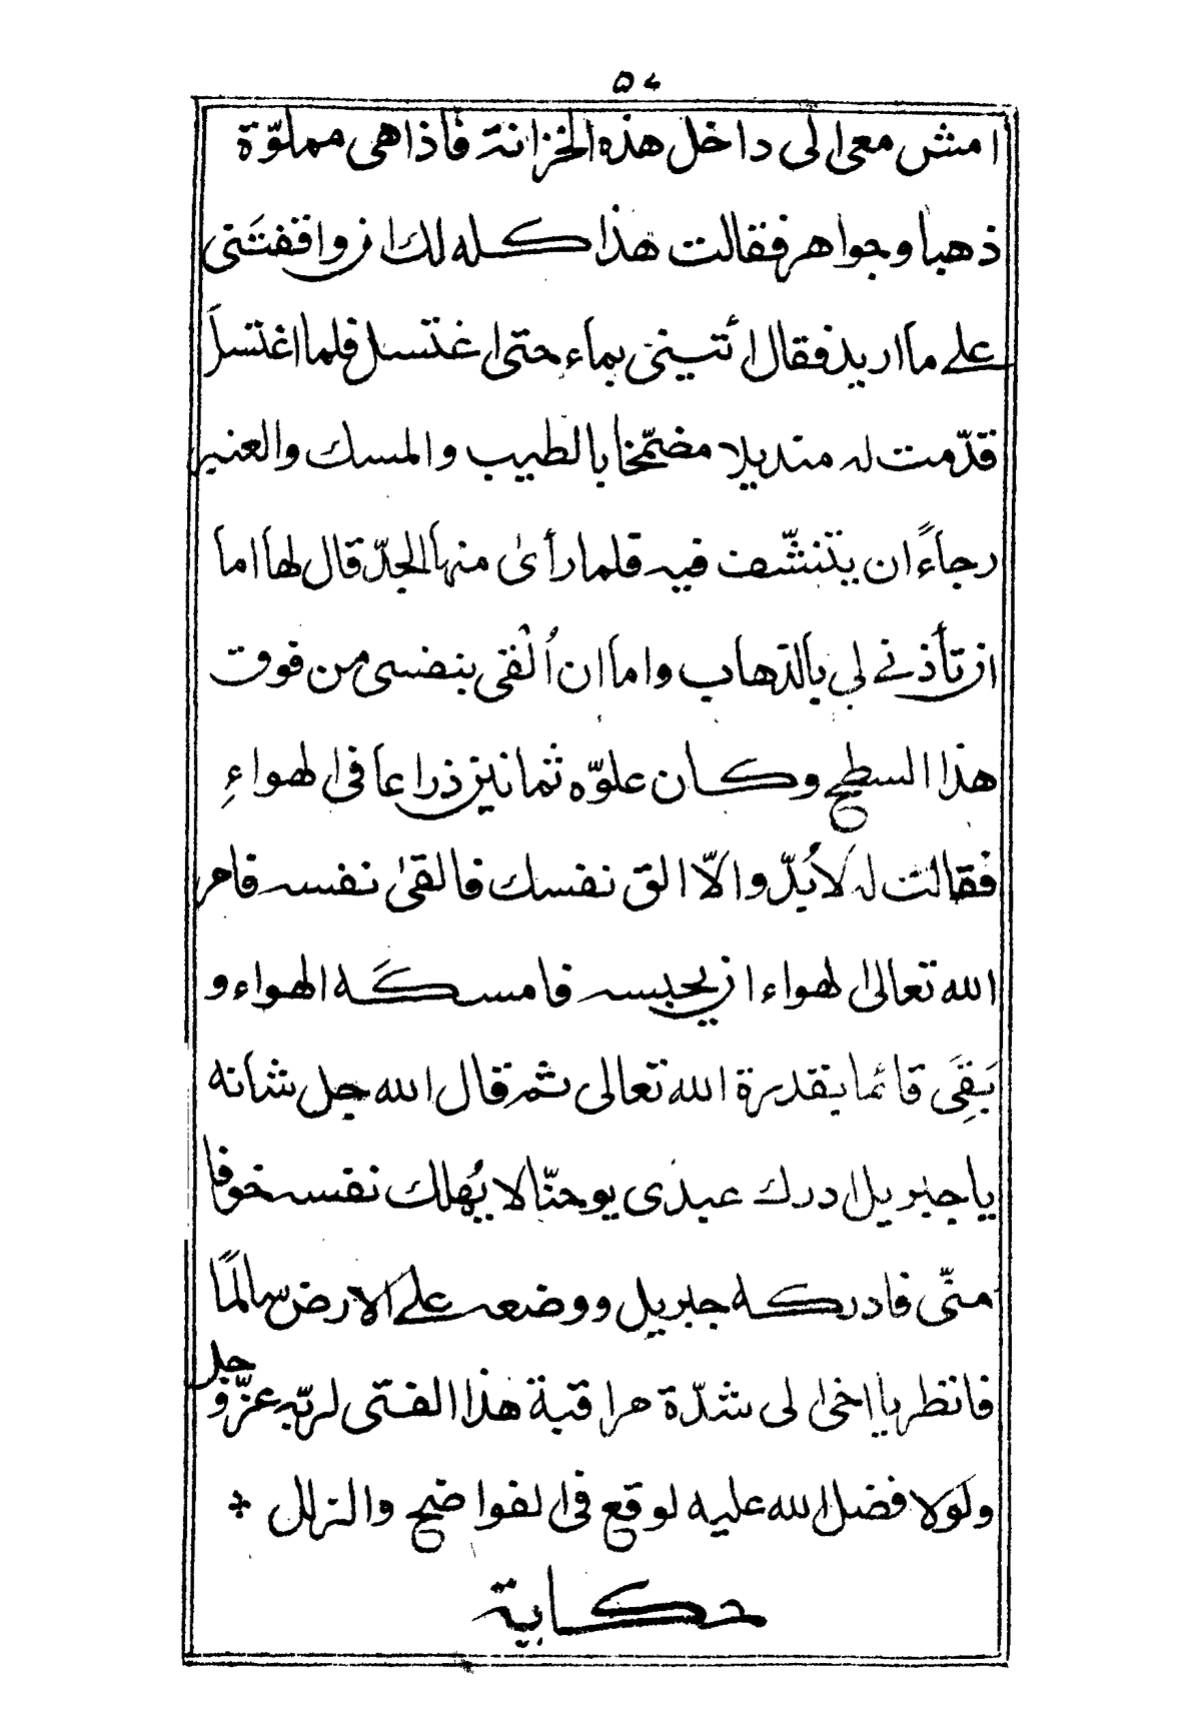 ٥٤
امش معى الى داخل هذه الخزانة فاذا هى مملوّة
ذهبا وجواهر فقالت هذا كله لك ان وافقتَنى
على ما اريد فقال أئتينى بماء حتى اغتسل فلما اغتسلَ
قدّمت له منديلا مضمّخا بالطيب والمسك والعنبر
رجاءً ان يتنشّف فيه فلما رأى منها الجدّ قال لها اما
ان تأذنى لى بالذهاب واما ان اُلْقى بنفسى من فوق
هذا السطح وكان علوّه ثمانين ذراعا فى الهواءِ
فقالت له لَابُدّ والّا الق نفسك فالقى نفسه فامر
الله تعالى الهواء ان يحبسه فامسكَه الهواء و
بَقِىَ قائما بقدرة الله تعالى ثم قال الله جل شانه
يا جبريل ادرك عبدى يوحنّا لا يُهلك نفسه خوفا
منّى فادركه جبريل ووضعه على الارض سالمًا
فانظر يا اخى الى شدّة مراقبة هذا الفتى لربّه عزّ وجل
ولولا فضل الله عليه لوقع فى الفواضح والزلل
حكاية